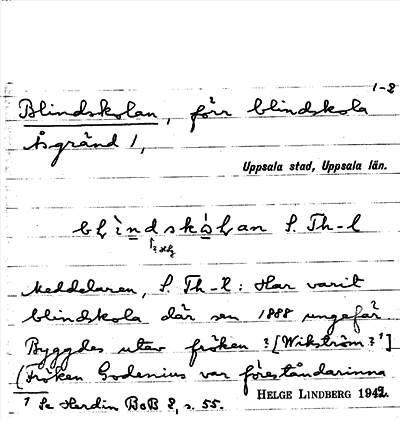 1-2
Blindskolan, förr blindskola
Åsgränd 1,
Uppsala stad, Uppsala län.
S. Th-l
Meddelaren, S. Th-l: Har varit
blindskola där sen 1888 ungefär?
Byggdes utav fröken ? [Wikström?¹]
(Fröken Godenius var föreståndarinna
¹ Se Herdin BoB 2, s. 55.
HELGE LINDBERG 1942.